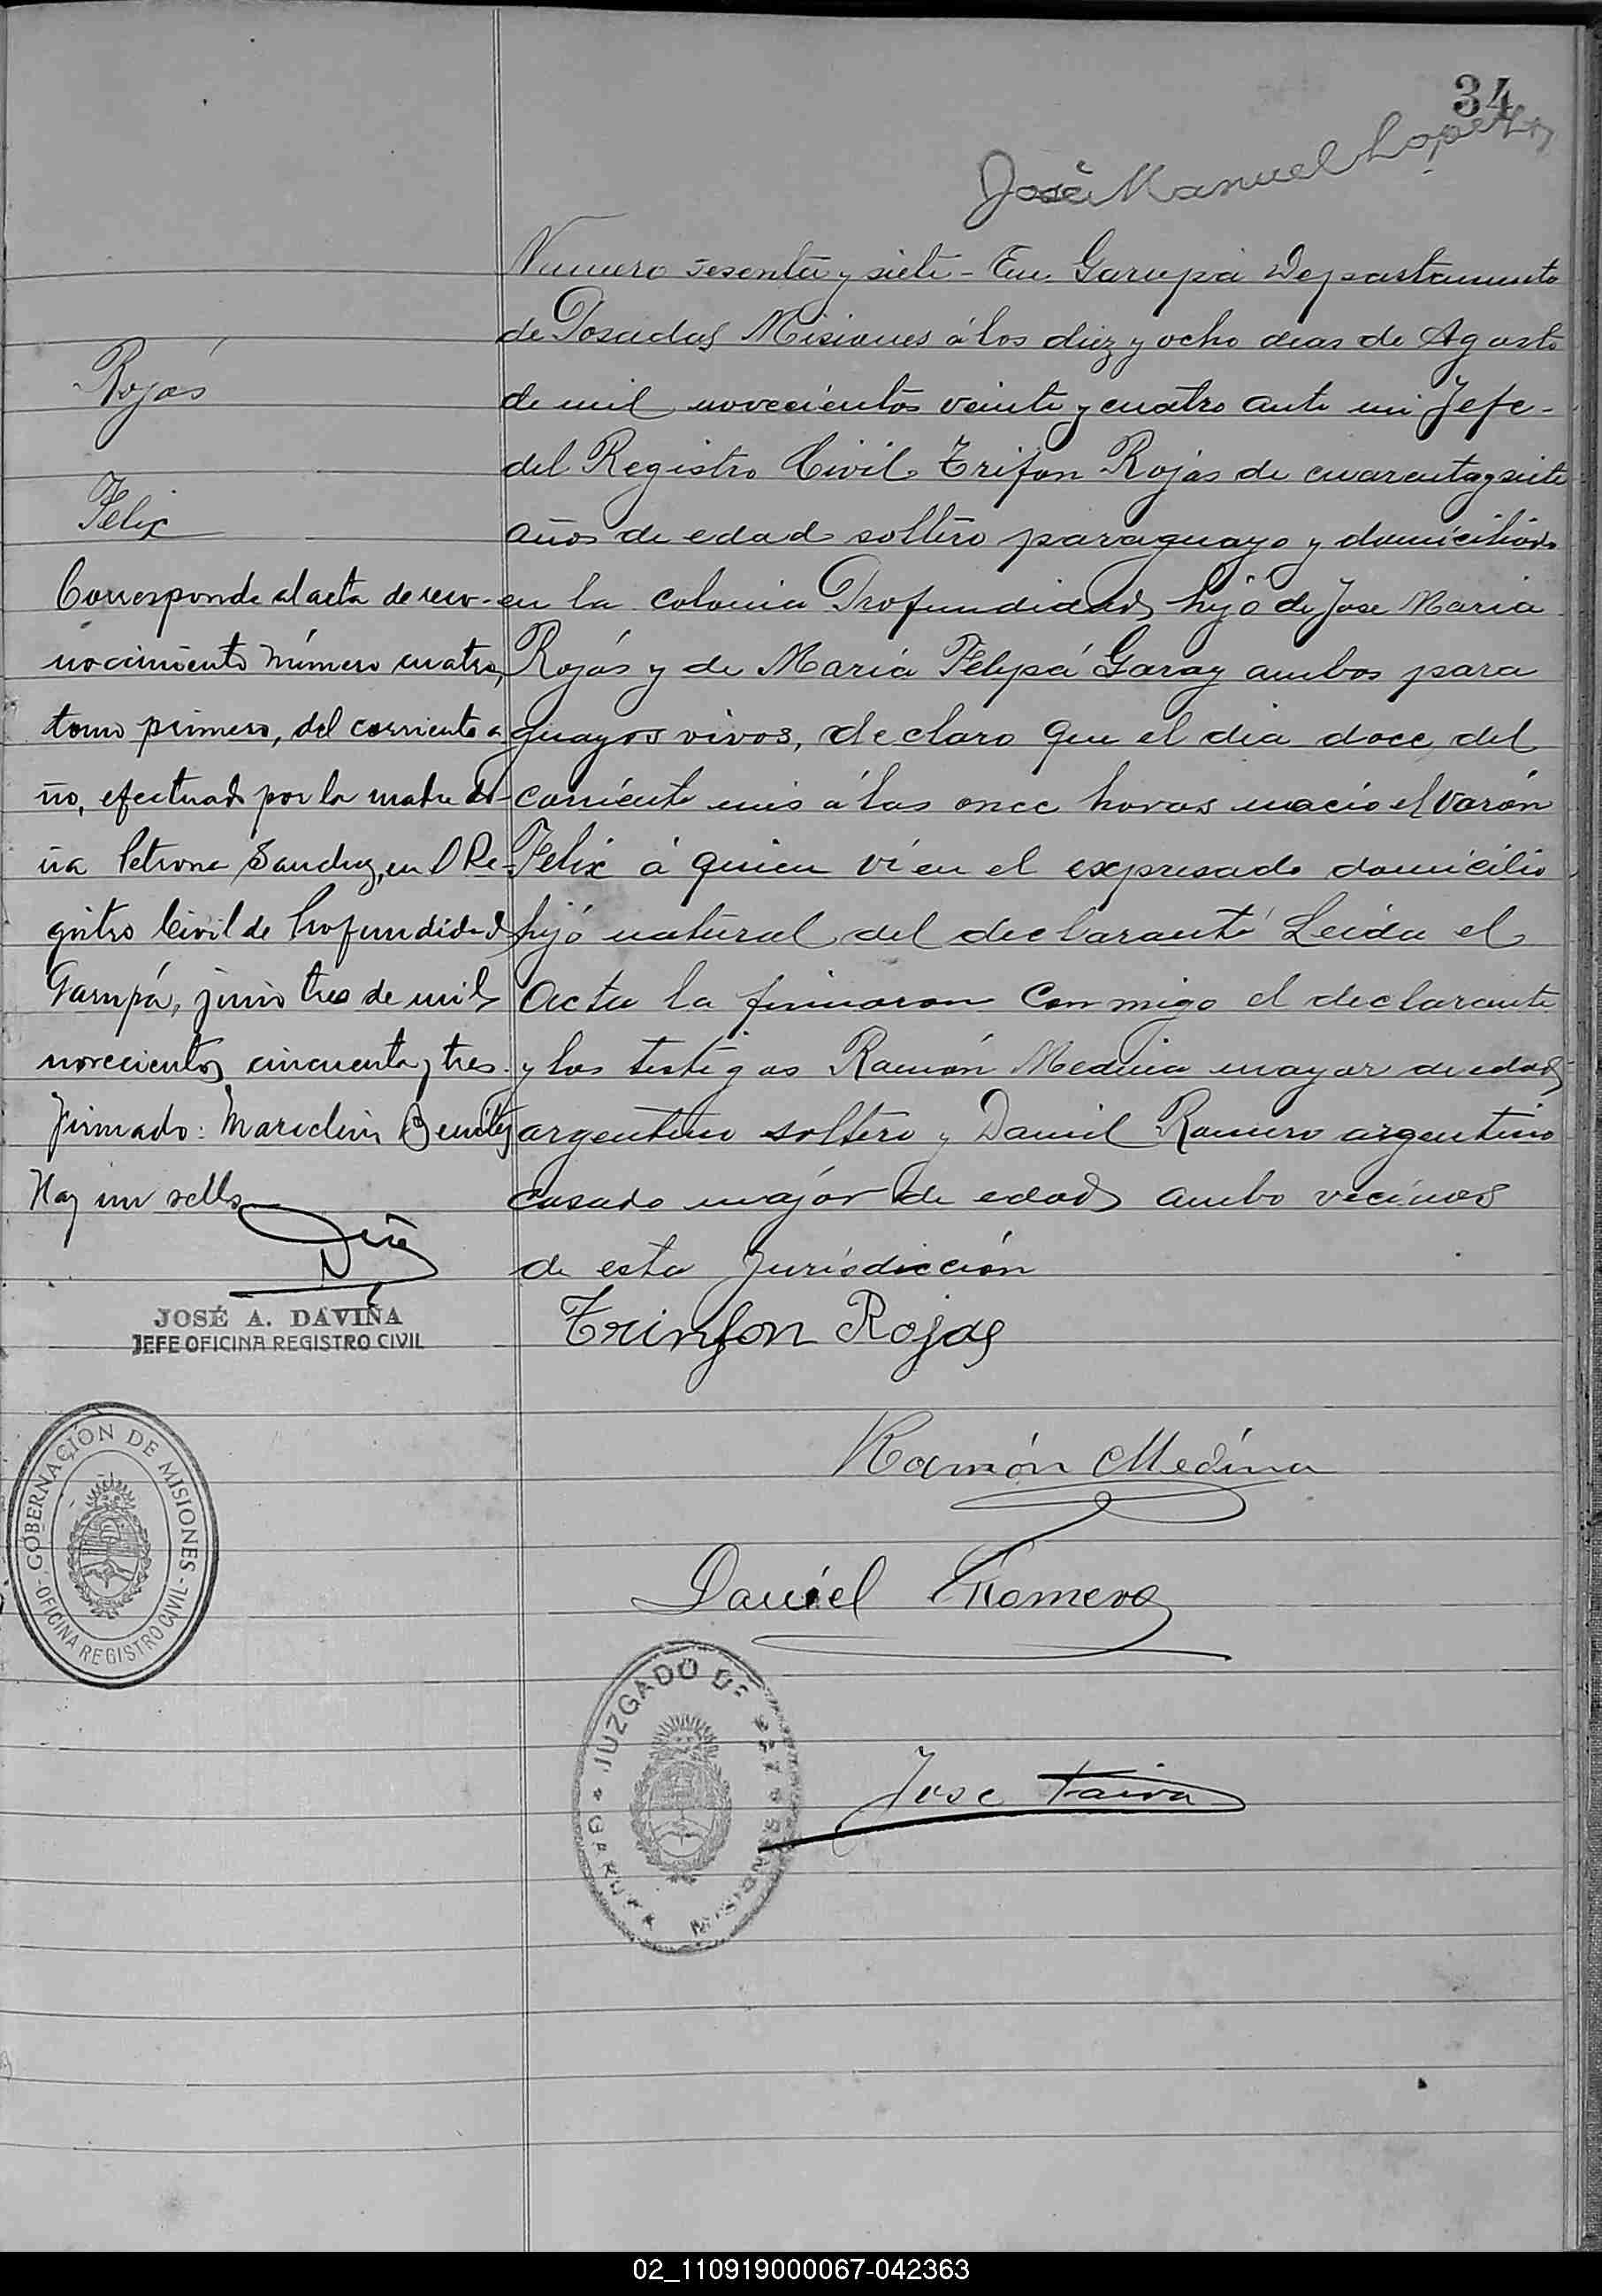 34
José Manuel Lopez
Numero sesenta y siete - En Garupá Departamento
de Posadas Misiones á los diez y ocho dias de Agosto
de mil novecientos veinte y cuatro ante mi Jefe
del Registro Civil Trifon Rojas de cuarenta y siete
años de edad soltero paraguayo y domiciliado
en la colonia Profundidad, hijo de Jose Maria
Rojás y de Maria Felipá Garay ambos para
guayos vivos, declaro que el dia doce del
corriente mes á las once horas nacio el varón
Felix á quien ví en el expresado domicilio
hijo natural del declaranté Leida el
Acta la firmaron Conmigo el declarante
y los testigos Ramón Medina mayor de edad
argentino soltero y Daniel Romero argentino
casado mayór de edad ambo vecinos
de esta Jurisdicción
Trinfon Rojas
Ramón Medina
Daniel Romero
Jose Paiva
Rojas
Felix
Corresponde al acta de reco-
nocimiento número cuatro,
tomo primero, del corriente a
ño, efectuado por la madre do-
ña Petrona Sanchez, en el Re-
gistro Civil de Profundidad
Garupá, junio tres de mil
novecientos cincuenta y tres.
Firmado: Marcelin Benitez
Hay un sello
JOSÉ A. DAVIÑA
JEFE OFICINA REGISTRO CIVIL
GOBERNACIÓN DE MISIONES
OFICINA REGISTRO CIVIL
JUZGADO DE PAZ
GARUPA
02_110919000067-042363